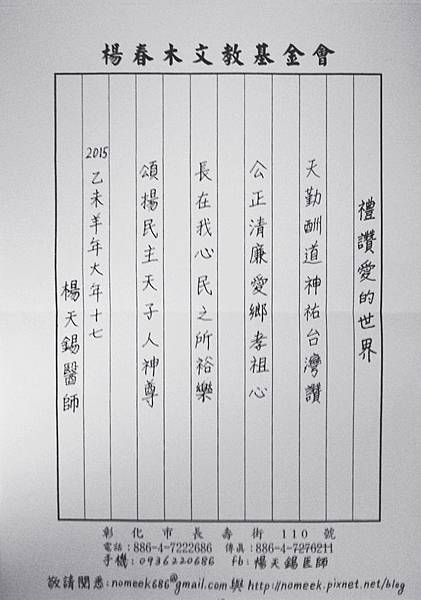 楊春木文教基金會
禮讚愛的世界
天勤酬道神祐台灣讚
公正清廉愛鄉孝祖心
長在我心民之所裕樂
頌楊民主天子人神尊
2015乙未羊年大年十七
楊天錫醫師
彰化市長壽街110號
電話:886-4-7222686 傳真:886-4-7276211
手機:0936220686 fb:楊天錫医師
敬請閱悉:nomeek686@gmail.com與http://nomeek.pixnet.net/blog